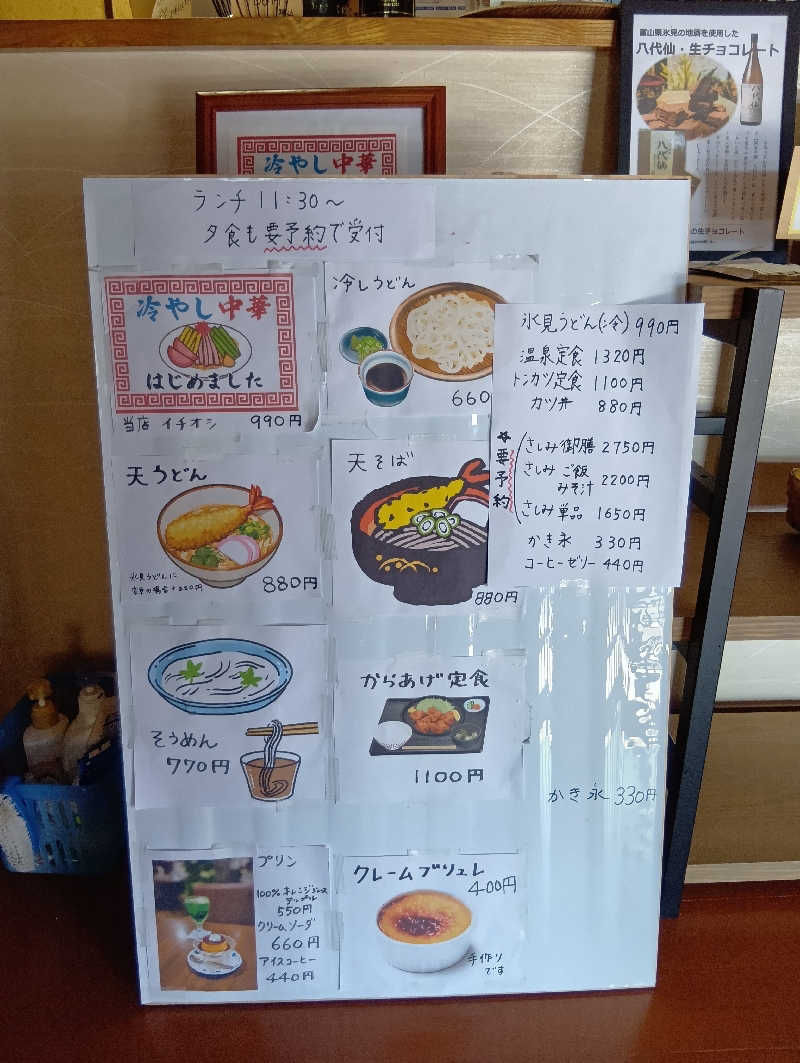 富山県氷見の地酒を使用した
八代仙・生チョコレート
冷やし中華
ランチ 11:30～
夕食も要予約で受付
冷やし中華
はじめました
当店 イチオシ 990円
冷しうどん
660
氷見うどん(冷) 990円
温泉定食 1320円
トンカツ定食 1100円
カツ丼 880円
☆要予約
さしみ御膳 2750円
さしみ ご飯
みそ汁 2200円
さしみ単品 1650円
かき氷 330円
コーヒーゼリー 440円
天うどん
氷見うどんに
880円
天そば
880円
そうめん
770円
からあげ定食
1100円
かき氷 330円
プリン
100% オレンジジュース
アップル
550円
クリームソーダ
660円
アイスコーヒー
440円
クレームブリュレ
400円
手作り
です
の生チョコレート